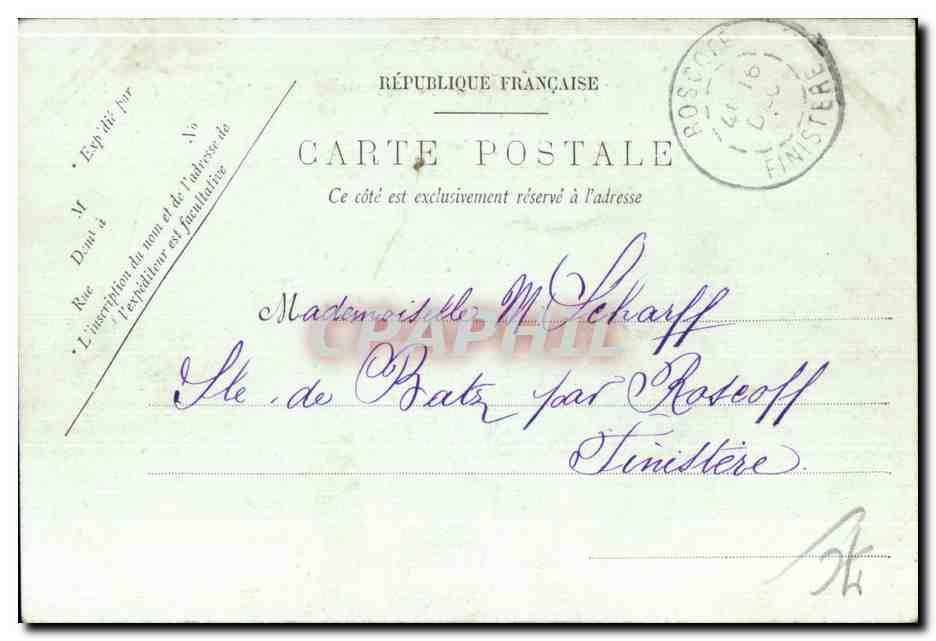 RÉPUBLIQUE FRANÇAISE
CARTE POSTALE
Ce côté est exclusivement réservé à l'adresse
ROSCOFF
16
FINISTERE
• Expédié par
M
Nº
Demt à
Rue
• L'inscription du nom et de l'adresse de
l'expéditeur est facultative
Mademoiselle M Scharff
Ile de Batz par Roscoff
Finistère.
CPAPHIL